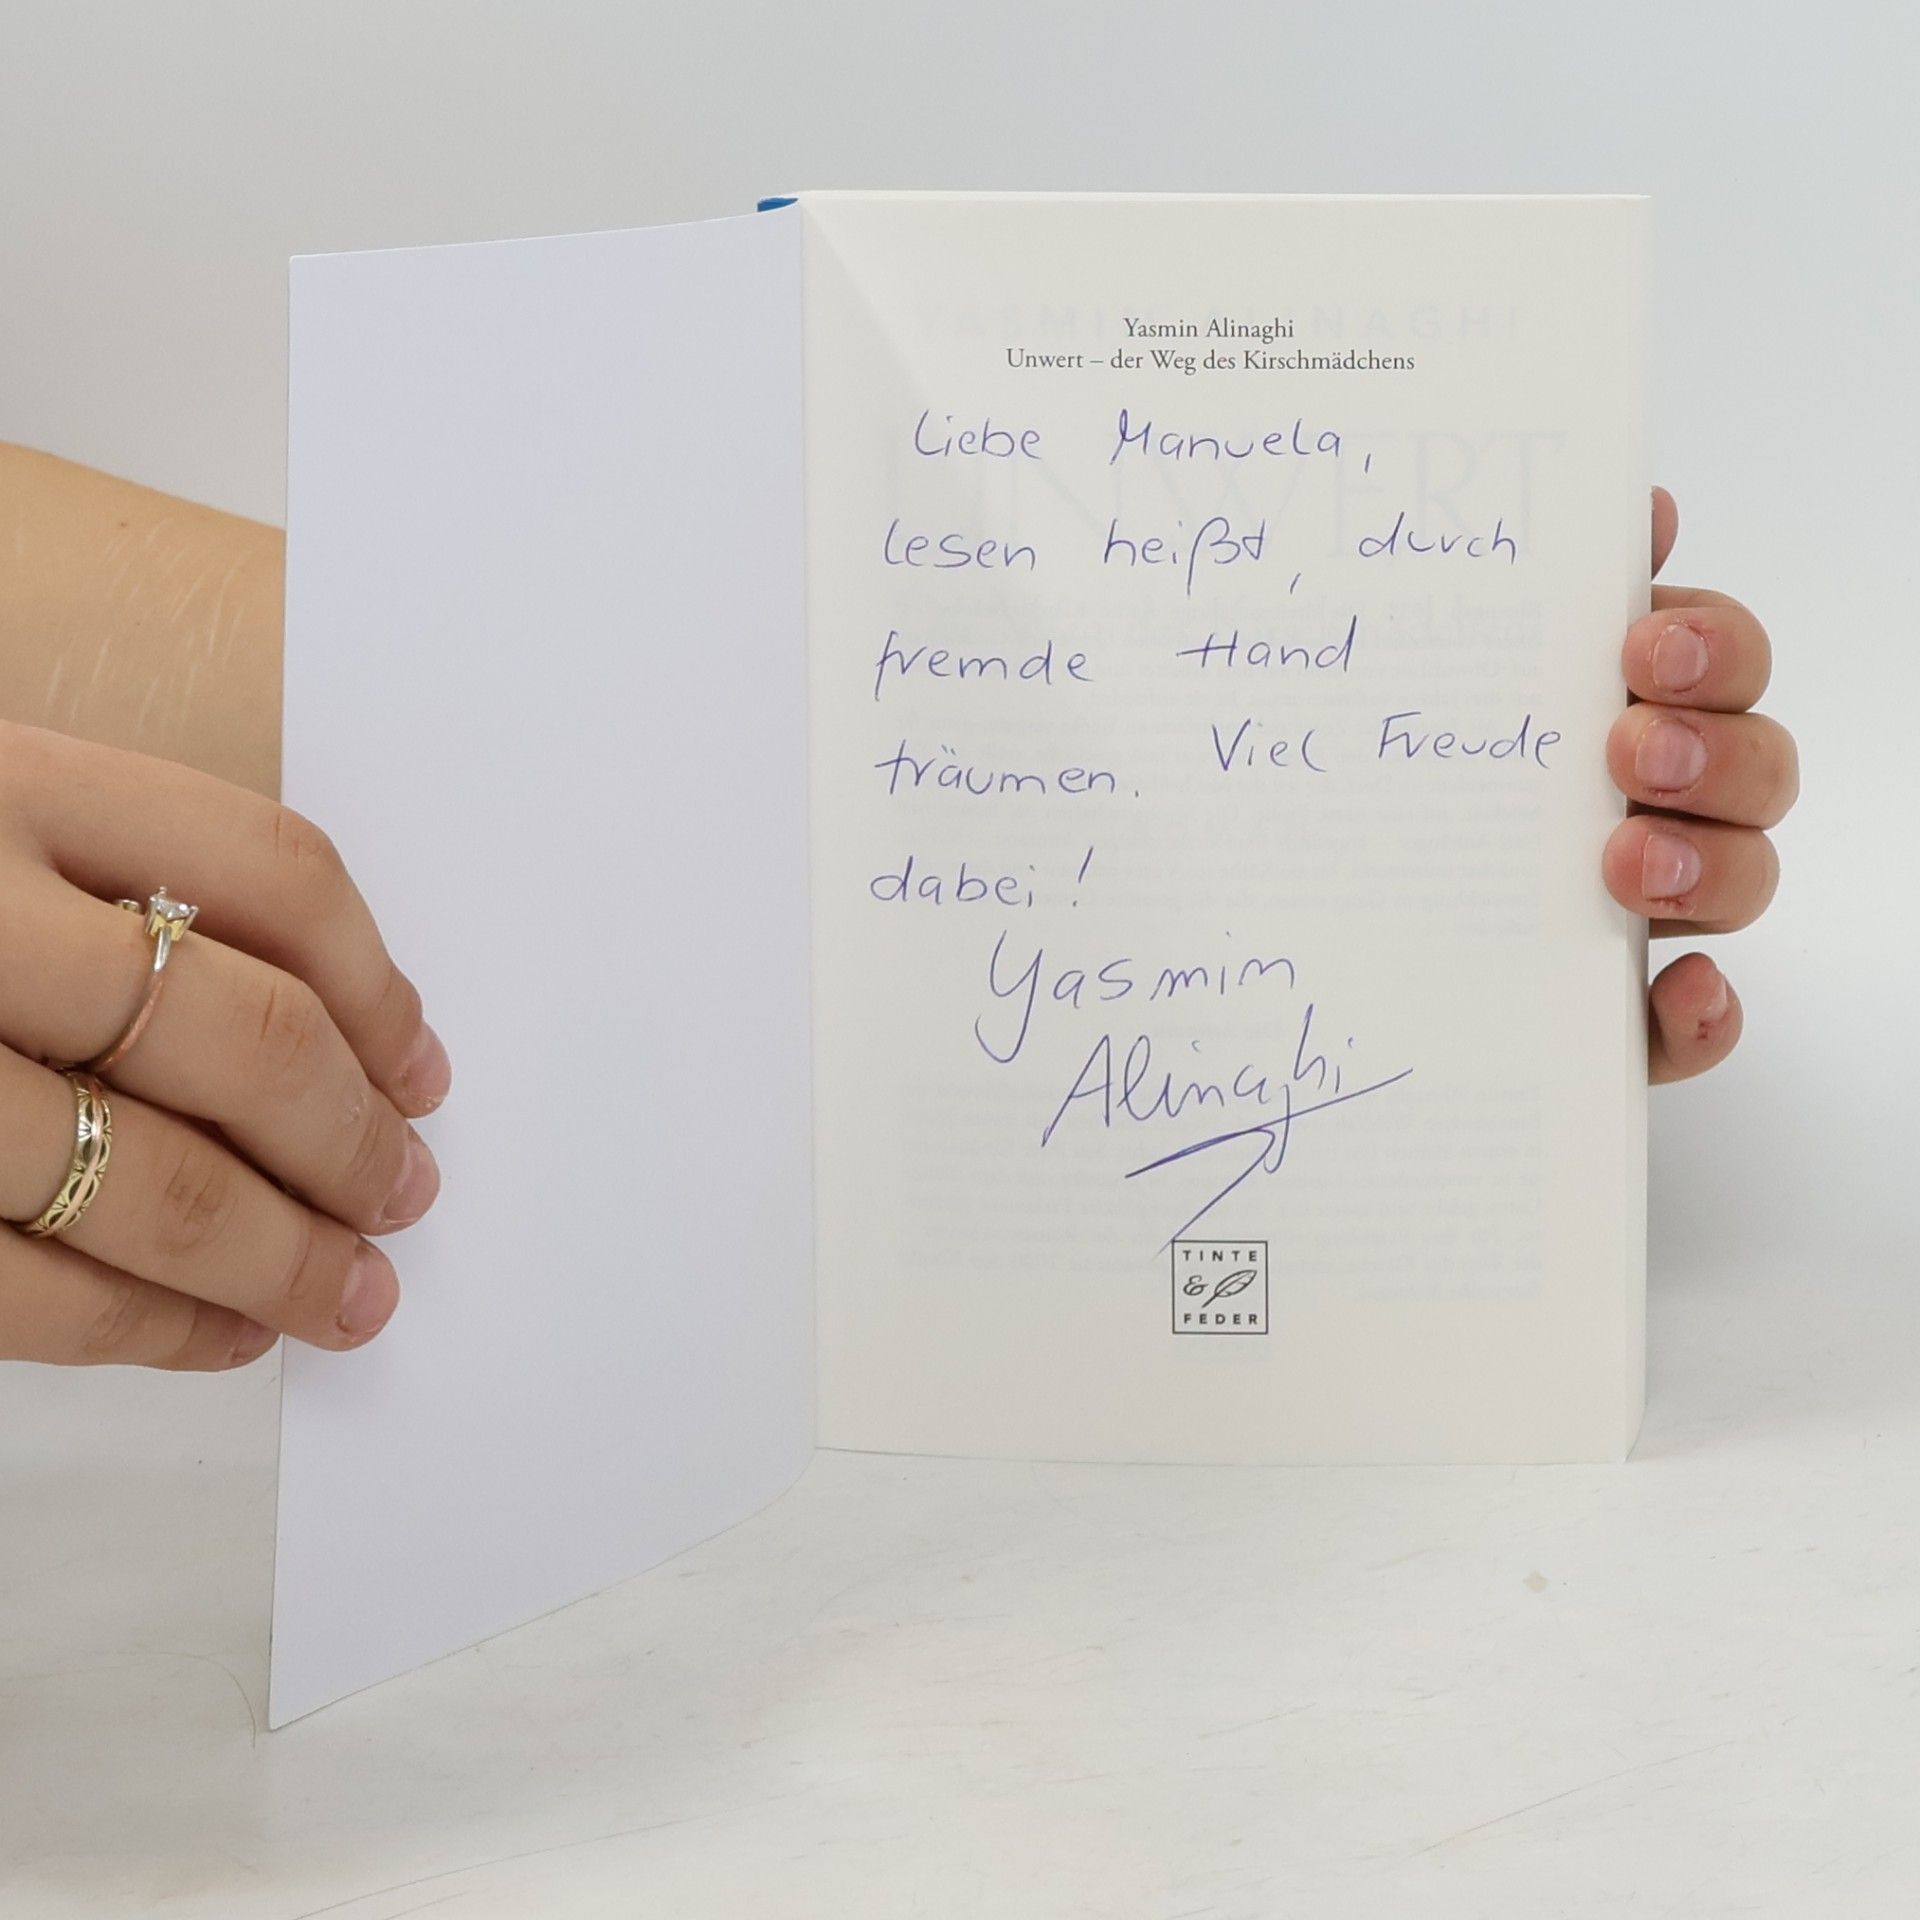 Yasmin Alinaghi
Unwert – der Weg des Kirschmädchens
Liebe Manuela,
lesen heißt, durch
fremde Hand
träumen. Viel Freude
dabei!
Yasmin
Alinaghi
TINTE
&
FEDER